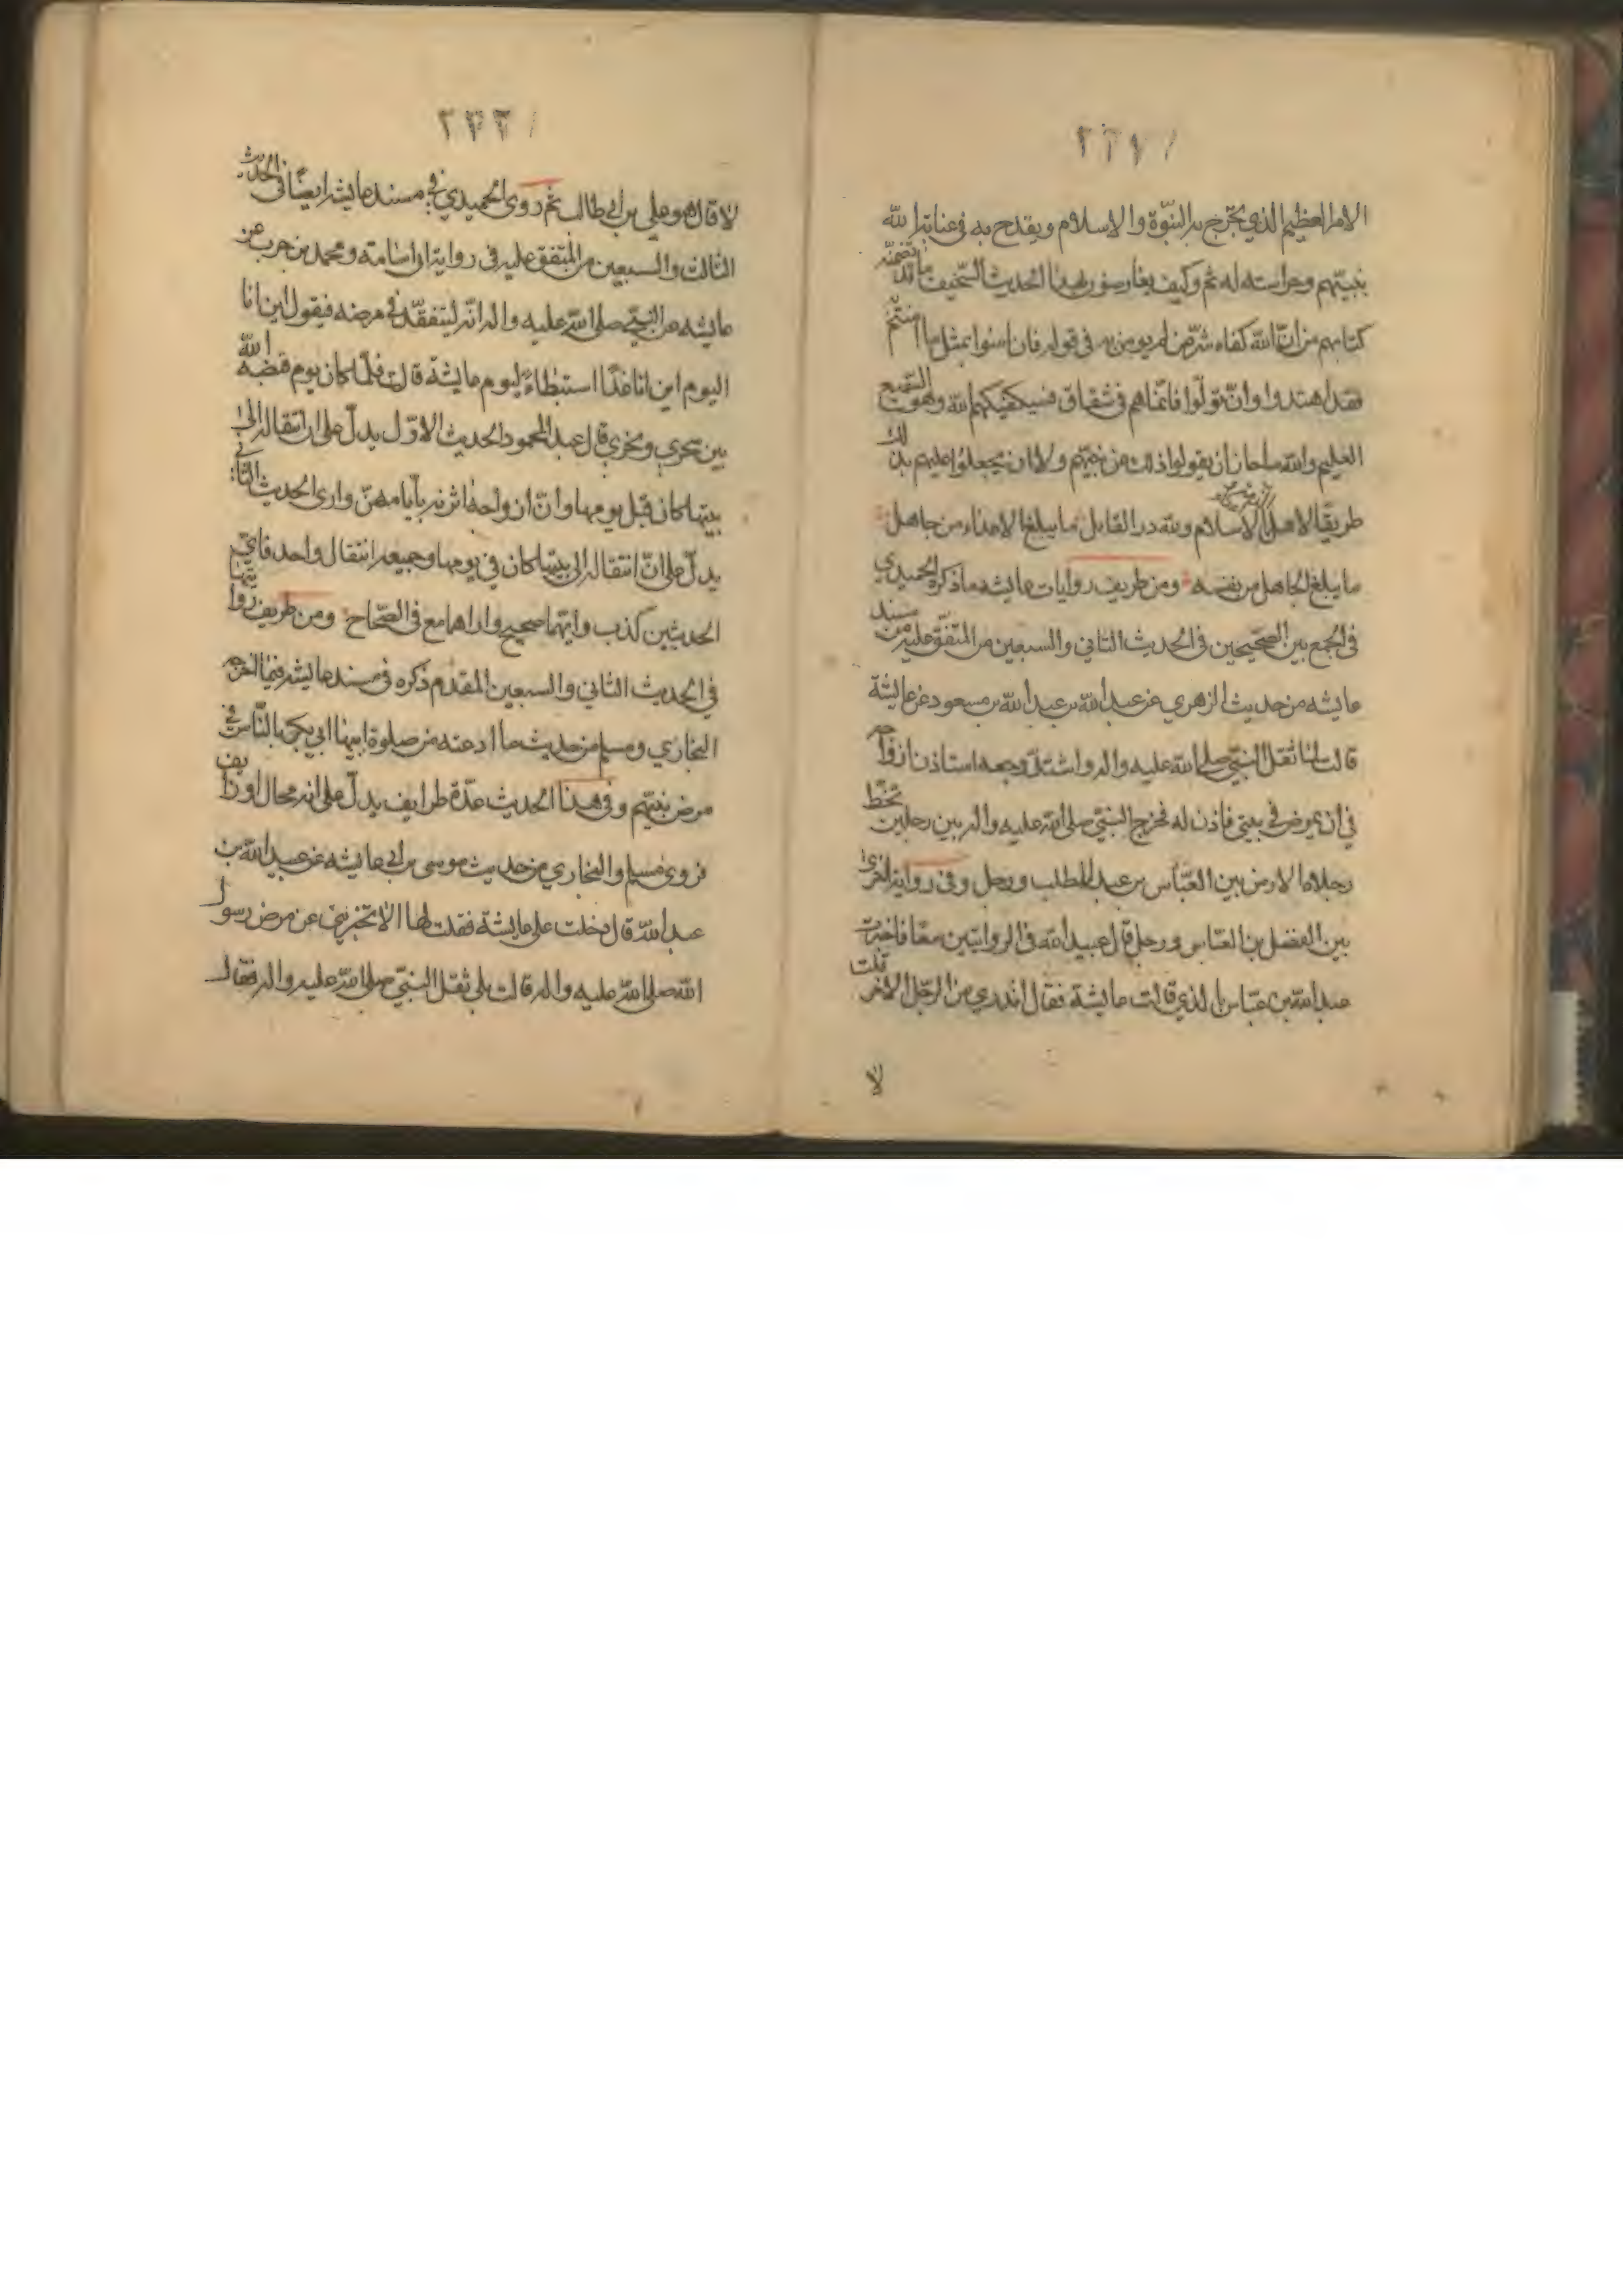 ٢٢١
الامر العظيم الذي يخرج به النبوّة والاسلام ويقدح به في عناية الله
بنبيّهم وحراسته له ثم وكيف يعارضون بهذا الحديث السخيف ما قد تضمنه
كتابهم من انّ الله كفاه شرّ من لم يومن به في قوله فان امنوا بمثل ما امنتم
فقد اهتدوا وان تولّوا فانّما هم في شقاق فسيكفيكهم الله وهو السّميع
العليم والله ما حان ان يقولوا ذلك من نبيّهم ولا ان يجعلوا عليهم بذلك
طريقا لاهل الاسلام ولله در القايل ما يبلغ الاعداء من جاهل
ما يبلغ الجاهل من نفسه ومن طريف روايات عايشه ما ذكره الحميدي
في الجمع بين الصحّيحين في الحديث الثاني والسبعين من المتّفق عليه من مسند
عايشه من حديث الزهري عن عبد الله بن عبد الله بن مسعود عن عايشة
قالت لمّا ثقل النبيّ صلى الله عليه واله واشتدّ وجعه استاذن ازواجه
في ان يمرض في بيتي فاذن له فخرج النبيّ صلى الله عليه واله بين رجلين تخطّ
رجلاه الارض بين العبّاس بن عبد المطلب ورجل وفي رواية اخرى
بين الفضل بن العبّاس ورجل قال عبيد الله في الروايتين معا فاخبرت
عبد الله بن عبّاس بالذي قالت عايشة فقال اتدري من الرجل الاخر قلت
لا
٢٢٢
لا قال هو علي بن ابي طالب ثم روى الحميدي في مسند عايشه ايضا في الحديث
الثالث والسبعين من المتفق عليه في رواية ابي اسامة ومحمد بن حرب عن
عايشه عن النبيّ صلى الله عليه واله انّه ليتفقّد في مرضه فيقول اين انا
اليوم اين انا غدا استبطاءً ليوم عايشة قالت فلمّا كان يوم قبضه الله
بين سحري ونحري قال عبد المحمود الحديث الاوّل يدلّ على ان انتقاله الى
بيتها كان قبل يومها وانّ ازواجه اثرنه بأيامهنّ وارى الحديث الثاني
يدلّ على انّ انتقاله الى بيتها كان في يومها وجميعه انتقال واحد فاي
الحديثين كذب وايّهما صحيح واراهما مع في الصّحاح ومن طريف رواياتهما
في الحديث الثاني والسبعين المقدم ذكره في مسند عايشه فيما اخرجه
البخاري ومسلم من حديث ما ادعته من صلوة ابيها ابي بكر بالنّاس في
مرض نبيّهم وفي هذا الحديث عدّة طرايف يدلّ على انه محال او زايف
فروى مسلم والبخاري من حديث موسى بن ابي عايشه عن عبيد الله بن
عبد الله قال دخلت على عايشة فقلت لها الا تخبريني عن مرض رسول
الله صلى الله عليه واله قالت بلى ثقل النبيّ صلى الله عليه واله فقال